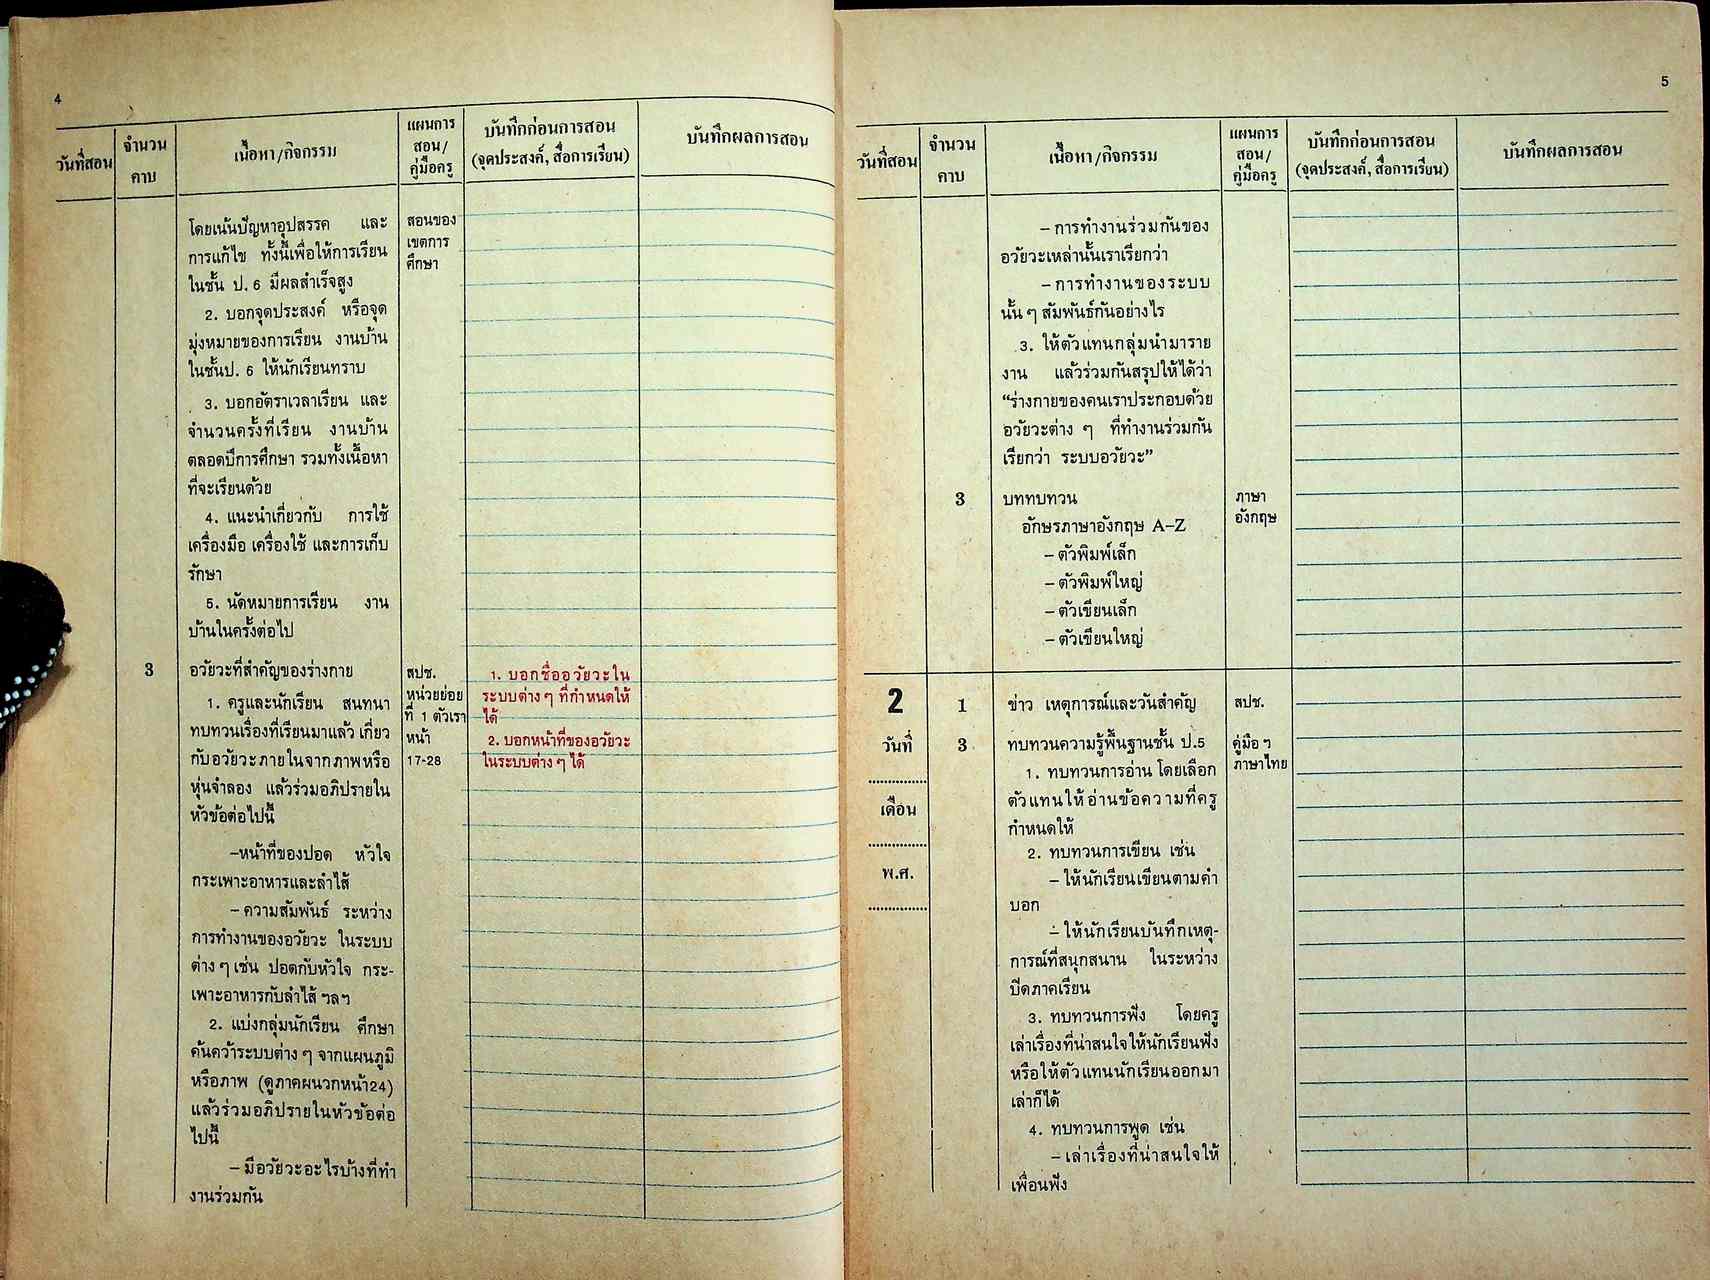 4
วันที่สอน
จำนวน
คาบ
เนื้อหา/กิจกรรม
แผนการ
สอน/
คู่มือครู
บันทึกก่อนการสอน
(จุดประสงค์, สื่อการเรียน)
บันทึกผลการสอน
โดยเน้นปัญหาอุปสรรค และ
การแก้ไข ทั้งนี้เพื่อให้การเรียน
ในชั้น ป. 6 มีผลสำเร็จสูง
2. บอกจุดประสงค์ หรือจุด
มุ่งหมายของการเรียน งานบ้าน
ในชั้นป. 6 ให้นักเรียนทราบ
3. บอกอัตราเวลาเรียน และ
จำนวนครั้งที่เรียน งานบ้าน
ตลอดปีการศึกษา รวมทั้งเนื้อหา
ที่จะเรียนด้วย
4. แนะนำเกี่ยวกับ การใช้
เครื่องมือ เครื่องใช้ และการเก็บ
รักษา
5. นัดหมายการเรียน งาน
บ้านในครั้งต่อไป
สอนของ
เขตการ
ศึกษา
3
อวัยวะที่สำคัญของร่างกาย
1. ครูและนักเรียน สนทนา
ทบทวนเรื่องที่เรียนมาแล้ว เกี่ยว
กับอวัยวะภายในจากภาพหรือ
หุ่นจำลอง แล้วร่วมอภิปรายใน
หัวข้อต่อไปนี้
–หน้าที่ของปอด หัวใจ
กระเพาะอาหารและลำไส้
– ความสัมพันธ์ ระหว่าง
การทำงานของอวัยวะ ในระบบ
ต่าง ๆ เช่น ปอดกับหัวใจ กระ-
เพาะอาหารกับลำไส้ ฯลฯ
2. แบ่งกลุ่มนักเรียน ศึกษา
ค้นคว้าระบบต่าง ๆ จากแผนภูมิ
หรือภาพ (ดูภาคผนวกหน้า24)
แล้วร่วมอภิปรายในหัวข้อต่อ
ไปนี้
– มีอวัยวะอะไรบ้างที่ทำ
งานร่วมกัน
สปช.
หน่วยย่อย
ที่ 1 ตัวเรา
หน้า
17-28
1. บอกชื่ออวัยวะใน
ระบบต่าง ๆ ที่กำหนดให้
ได้
2. บอกหน้าที่ของอวัยวะ
ในระบบต่าง ๆ ได้
5
วันที่สอน
จำนวน
คาบ
เนื้อหา/กิจกรรม
แผนการ
สอน/
คู่มือครู
บันทึกก่อนการสอน
(จุดประสงค์, สื่อการเรียน)
บันทึกผลการสอน
– การทำงานร่วมกันของ
อวัยวะเหล่านั้นเราเรียกว่า
– การทำงานของระบบ
นั้น ๆ สัมพันธ์กันอย่างไร
3. ให้ตัวแทนกลุ่มนำมาราย
งาน แล้วร่วมกันสรุปให้ได้ว่า
“ร่างกายของคนเราประกอบด้วย
อวัยวะต่าง ๆ ที่ทำงานร่วมกัน
เรียกว่า ระบบอวัยวะ”
3
บททบทวน
อักษรภาษาอังกฤษ A–Z
– ตัวพิมพ์เล็ก
– ตัวพิมพ์ใหญ่
– ตัวเขียนเล็ก
– ตัวเขียนใหญ่
ภาษา
อังกฤษ
2
วันที่
..........
เดือน
..........
พ.ศ.
..........
1
ข่าว เหตุการณ์และวันสำคัญ
สปช.
3
ทบทวนความรู้พื้นฐานชั้น ป.5
คู่มือ ฯ
ภาษาไทย
1. ทบทวนการอ่าน โดยเลือก
ตัวแทนให้อ่านข้อความที่ครู
กำหนดให้
2. ทบทวนการเขียน เช่น
– ให้นักเรียนเขียนตามคำ
บอก
– ให้นักเรียนบันทึกเหตุ-
การณ์ที่สนุกสนาน ในระหว่าง
ปิดภาคเรียน
3. ทบทวนการฟัง โดยครู
เล่าเรื่องที่น่าสนใจให้นักเรียนฟัง
หรือให้ตัวแทนนักเรียนออกมา
เล่าก็ได้
4. ทบทวนการพูด เช่น
– เล่าเรื่องที่น่าสนใจให้
เพื่อนฟัง